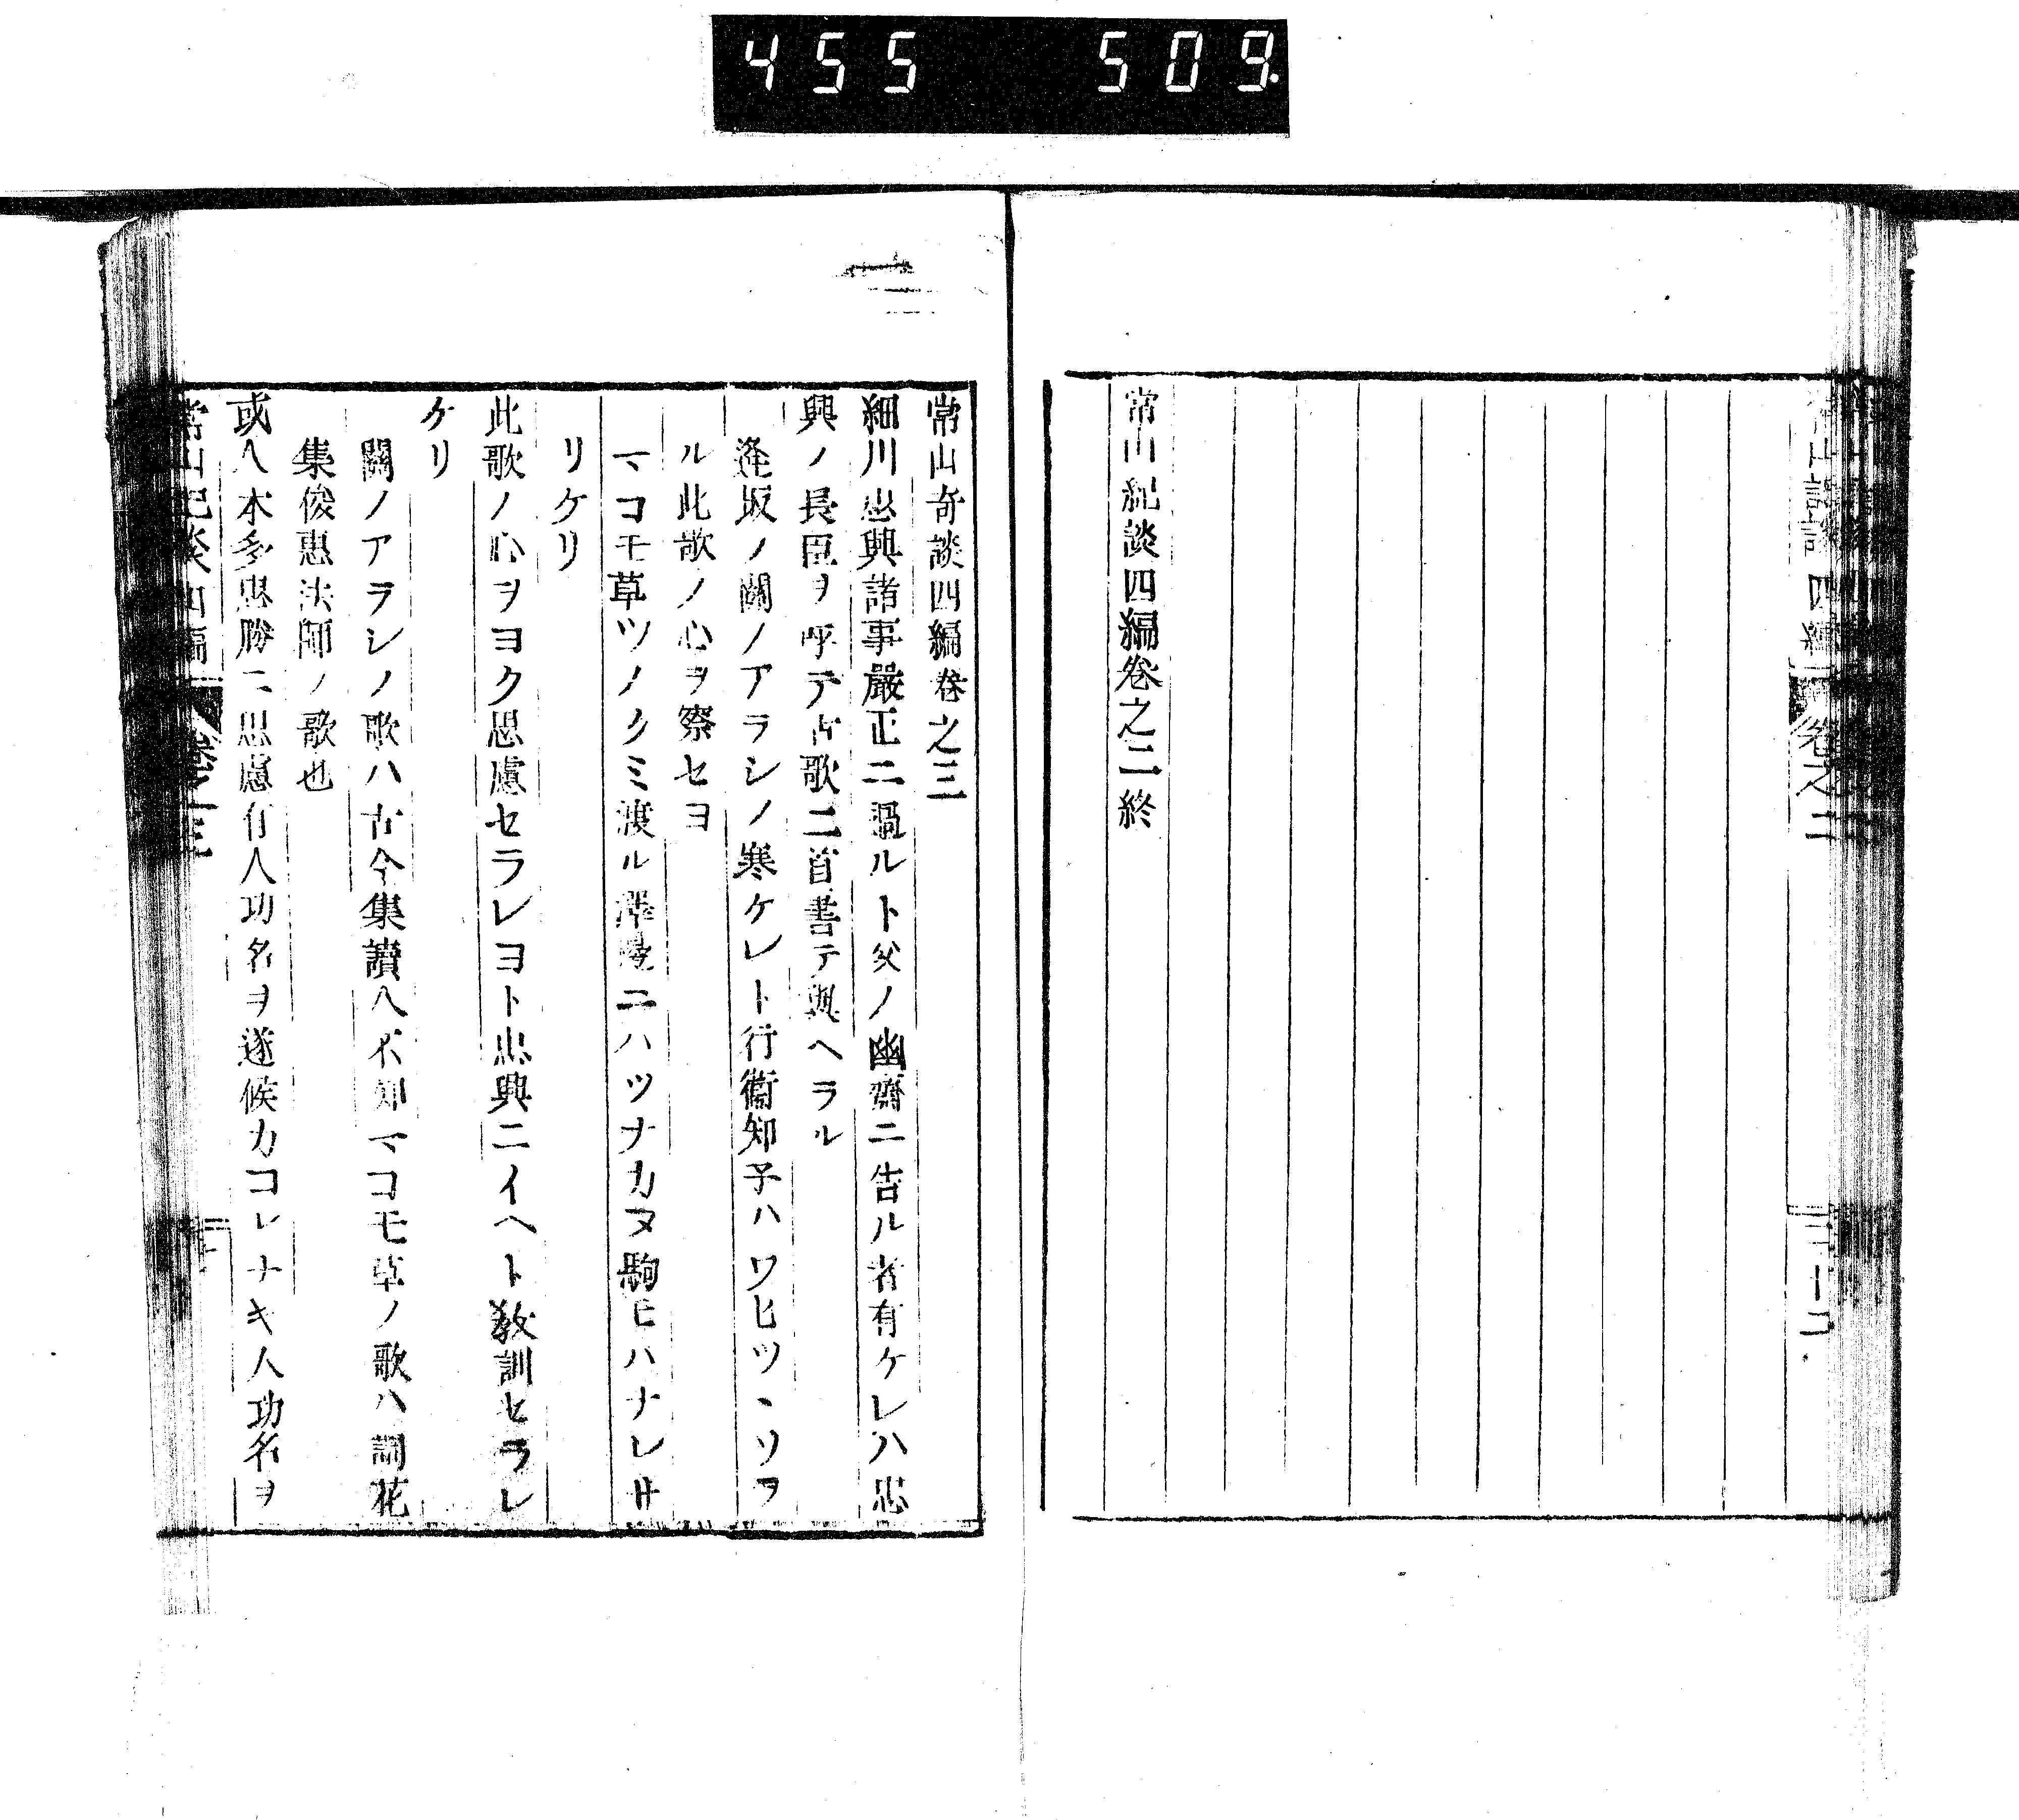 455 509
常山紀談四編卷之二終
常山奇談四編卷之三
細川忠興諸事嚴正ニ過ルト父ノ幽齋ニ告ル者有ケレハ忠
興ノ長臣ヲ呼テ古歌二首書テ與ヘラル
逢坂ノ關ノアラシノ寒ケレト行衞知子ハワヒツヽソヲ
ル此歌ノ心ヲ察セヨ
マコモ草ツノクミ渡ル澤邊ニハツナカヌ駒モハナレサ
リケリ
此歌ノ心ヲヨク思慮セラレヨト忠興ニイヘト敎訓セラレ
ケリ
關ノアラシノ歌ハ古今集讀人不知マコモ草ノ歌ハ詞花
集俊惠法師ノ歌也
或人本多忠勝ニ思慮有人功名ヲ遂候カコレナキ人功名ヲ
常山紀談四編 卷之三